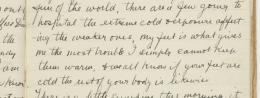 pen of the world, there are a few going to
hospital the extreme cold & exposure affect
ing the weaker ones, my feet is what gives
me the most trouble I simply cannot keep
them warm, & we all know if your feet are
cold the rest of your body is likewise
There is a little sunshine this morning it